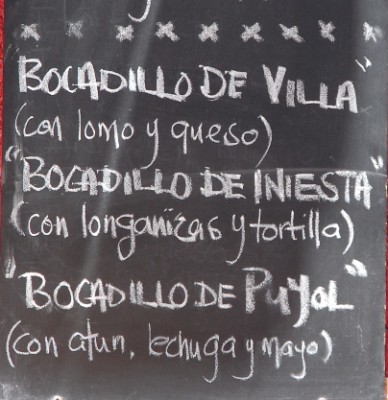 BOCADILLO DE VILLA"
(con lomo y queso)
"BOCADILLO DE INIESTA"
(con longanizas y tortilla)
"BOCADILLO DE PuYoL"
(con atun, lechuga y mayo)